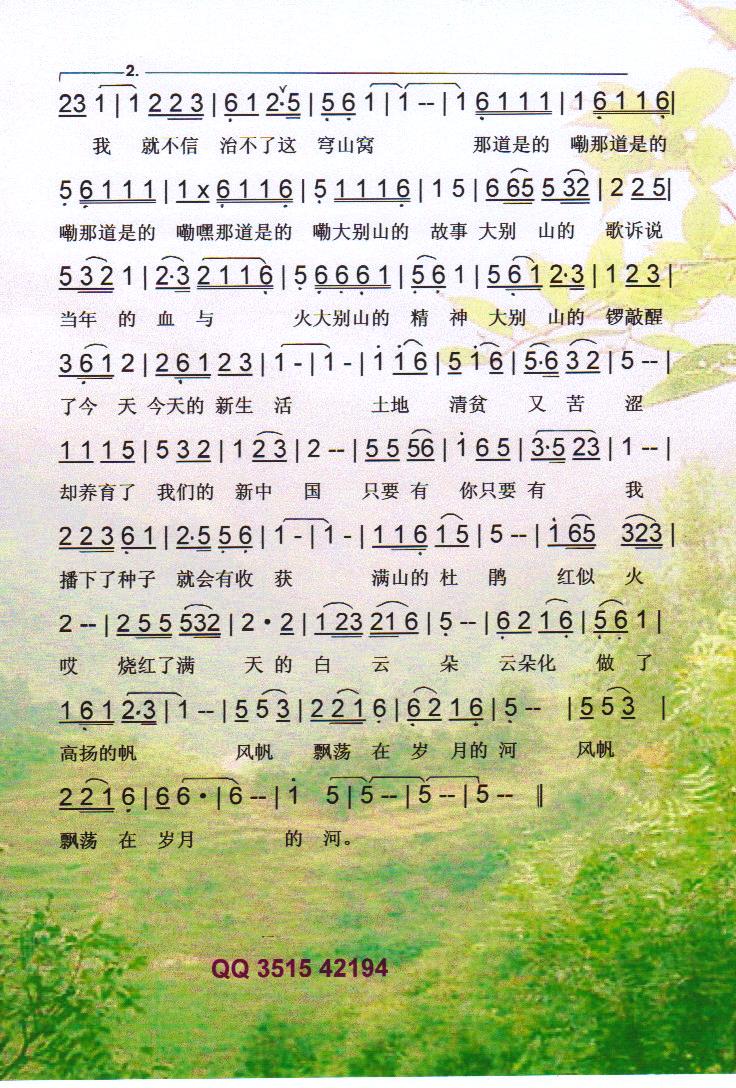 2.
23 1 | 1 2 2 3 | 6 1 2·5 | 5 6 1 | 1 -- | 1 6 1 1 1 | 1 6 1 1 6 |
我 就不信 治不了这 穹山窝 那道是的 嘞那道是的
5 6 1 1 1 | 1 x 6 1 1 6 | 5 1 1 1 6 | 1 5 | 6 65 5 32 | 2 2 5 |
嘞那道是的 嘞嘿那道是的 嘞大别山的 故事 大别 山的 歌诉说
5 3 2 1 | 2·3 2 1 1 6 | 5 6 6 6 1 | 5 6 1 | 5 6 1 2·3 | 1 2 3 |
当年 的 血 与 火大别山的 精 神 大别 山的 锣敲醒
3 6 1 2 | 2 6 1 2 3 | 1 - | 1 - | 1 1 6 | 5 1 6 | 5·6 3 2 | 5 -- |
了今 天 今天的 新生 活 土地 清贫 又 苦 涩
1 1 1 5 | 5 3 2 | 1 2 3 | 2 -- | 5 5 56 | 1 6 5 | 3·5 23 | 1 -- |
却养育了 我们的 新中 国 只要 有 你只要 有 我
2 2 3 6 1 | 2·5 5 6 | 1 - | 1 - | 1 1 6 1 5 | 5 -- | 1 65 323 |
播下了种子 就会有收 获 满山的 杜 鹃 红似 火
2 -- | 2 5 5 532 | 2 · 2 | 1 23 21 6 | 5 -- | 6 2 1 6 | 5 6 1 |
哎 烧红了满 天 的 白 云 朵 云朵化 做 了
1 6 1 2·3 | 1 -- | 5 5 3 | 2 2 1 6 | 6 2 1 6 | 5 -- | 5 5 3 |
高扬的帆 风帆 飘荡 在 岁 月的 河 风帆
2 2 1 6 | 6 6 · | 6 -- | 1 5 | 5 -- | 5 -- | 5 -- ‖
飘荡 在 岁月 的 河。
QQ 3515 42194